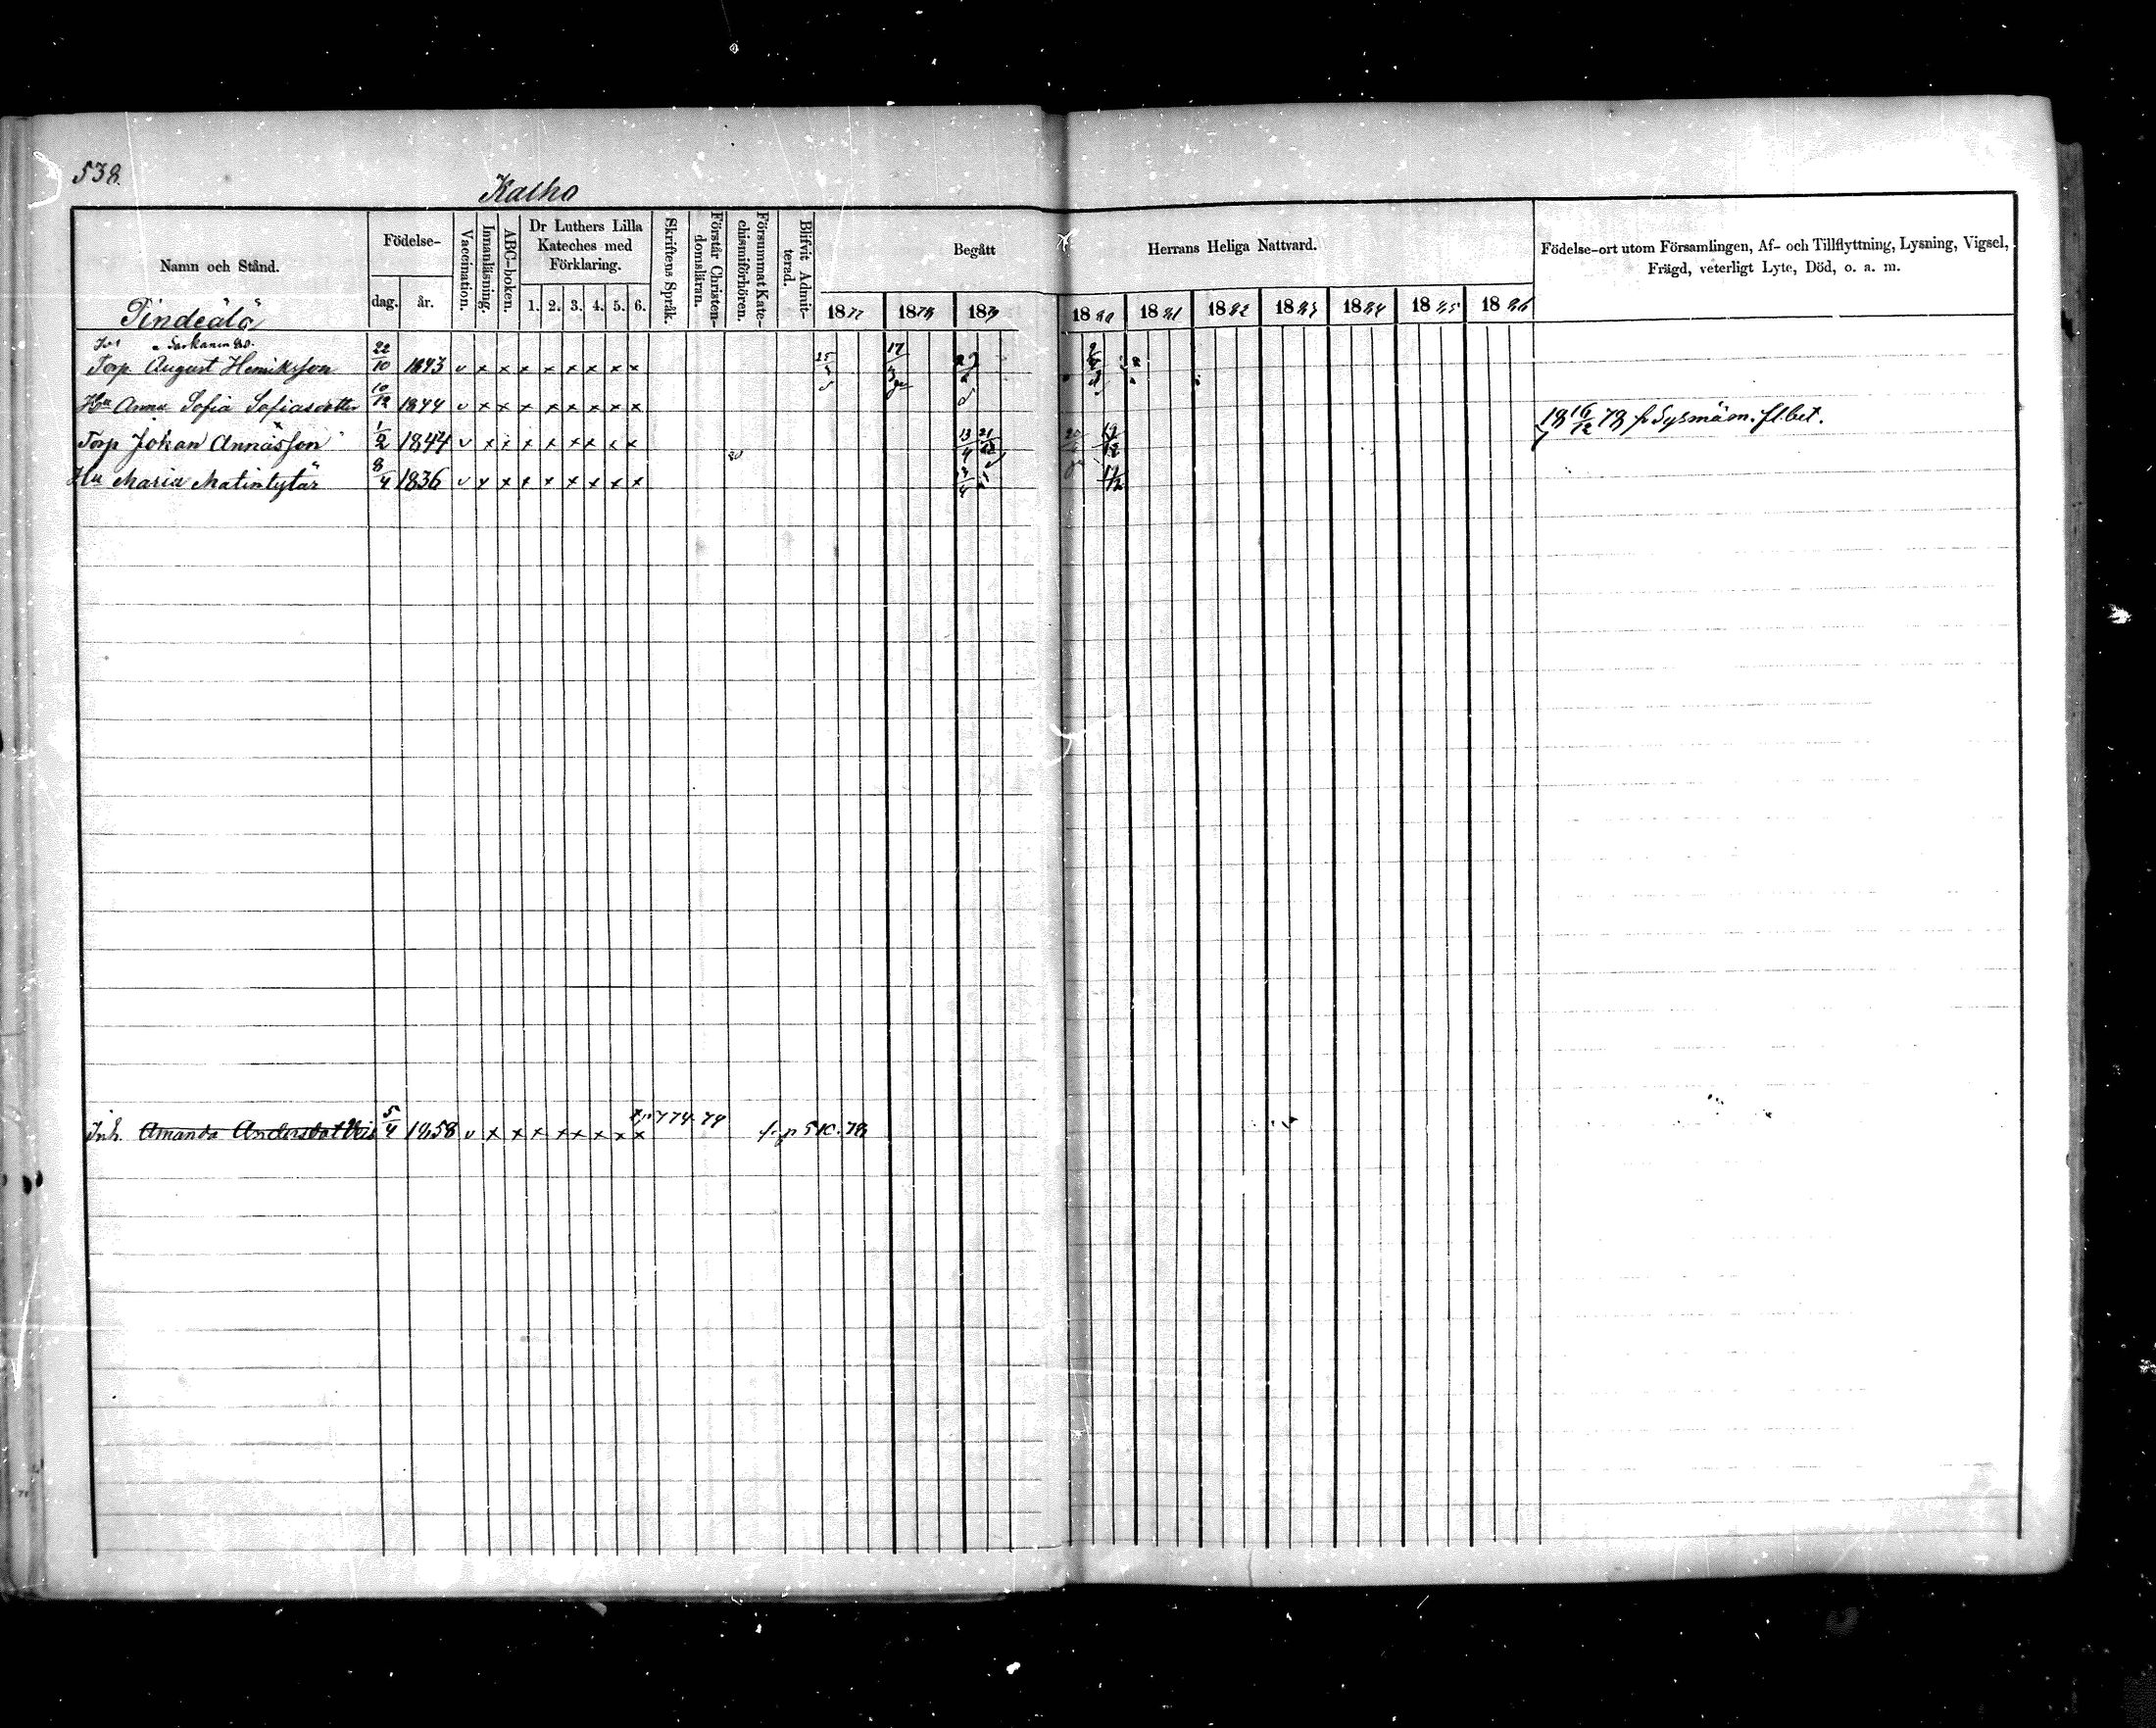 538.
Kalho
Namn och Stånd.
Födelse-
dag. år.
Vaccination.
Innanläsning.
ABC-boken.
Dr Luthers Lilla
Kateches med
Förklaring.
1. 2. 3. 4. 5. 6.
Skriftens Språk.
Förstår Christen-
domsläran.
Försummat Kate-
chismiförhören.
Blifvit Admit-
terad.
Begått Herrans Heliga Nattvard.
1877 1878 1879 1880 1881 1882 1883 1884 1885 1886
Födelse-ort utom Församlingen, Af- och Tillflyttning, Lysning, Vigsel,
Frägd, veterligt Lyte, Död, o. a. m.
Torp August Henriksson 22/10 1843 v x x x x x x x x
Hu Anna Sofia Sofiasdotter 10/12 1844 v x x x x x x x x
Torp Johan Annasson 1/2 1844 v x x x x x x x x 13/4
16/12 78 fr Sysmäm. fl. bet.
Hu Maria Matintytär 8/4 1836 v x x x x x x x x
Inh. Amanda Andersdot 5/4 1858 v x x x x x x x x 774.79 510.78